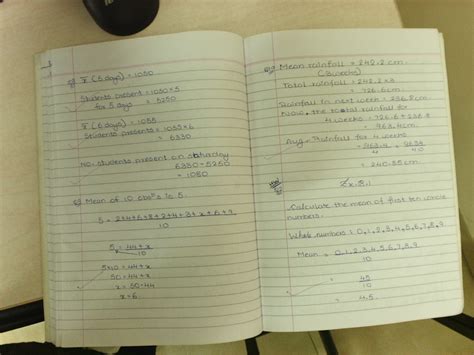 x̄ (5 days) = 1050
Students present = 1050 × 5
for 5 days = 5250
x̄ (6 days) = 1055
Students presents = 1055 × 6
= 6330
No. students present on Saturday
6330 - 5250
= 1080
Mean of 10 obsⁿs is 5.
10
5 = 44 + x
10
5×10 = 44 + x
50 = 44 + x
x = 50 - 44
x = 6
Mean rainfall = 242.2 cm
(3 weeks)
Total rainfall = 242.2 × 3
= 726.6 cm
Rainfall in next week = 236.8 cm
the total rainfall for
4 weeks = 726.6 + 236.8
= 963.4 cm
Avg. Rainfall for 4 weeks
= 240.85 cm
Ex. 5.1
Calculate the mean of first ten whole
numbers.
Whole numbers = 0, 1, 2, 3, 4, 5, 6, 7, 8, 9
Mean = 0, 1, 2, 3, 4, 5, 6, 7, 8, 9
10
= 45
10
= 4.5